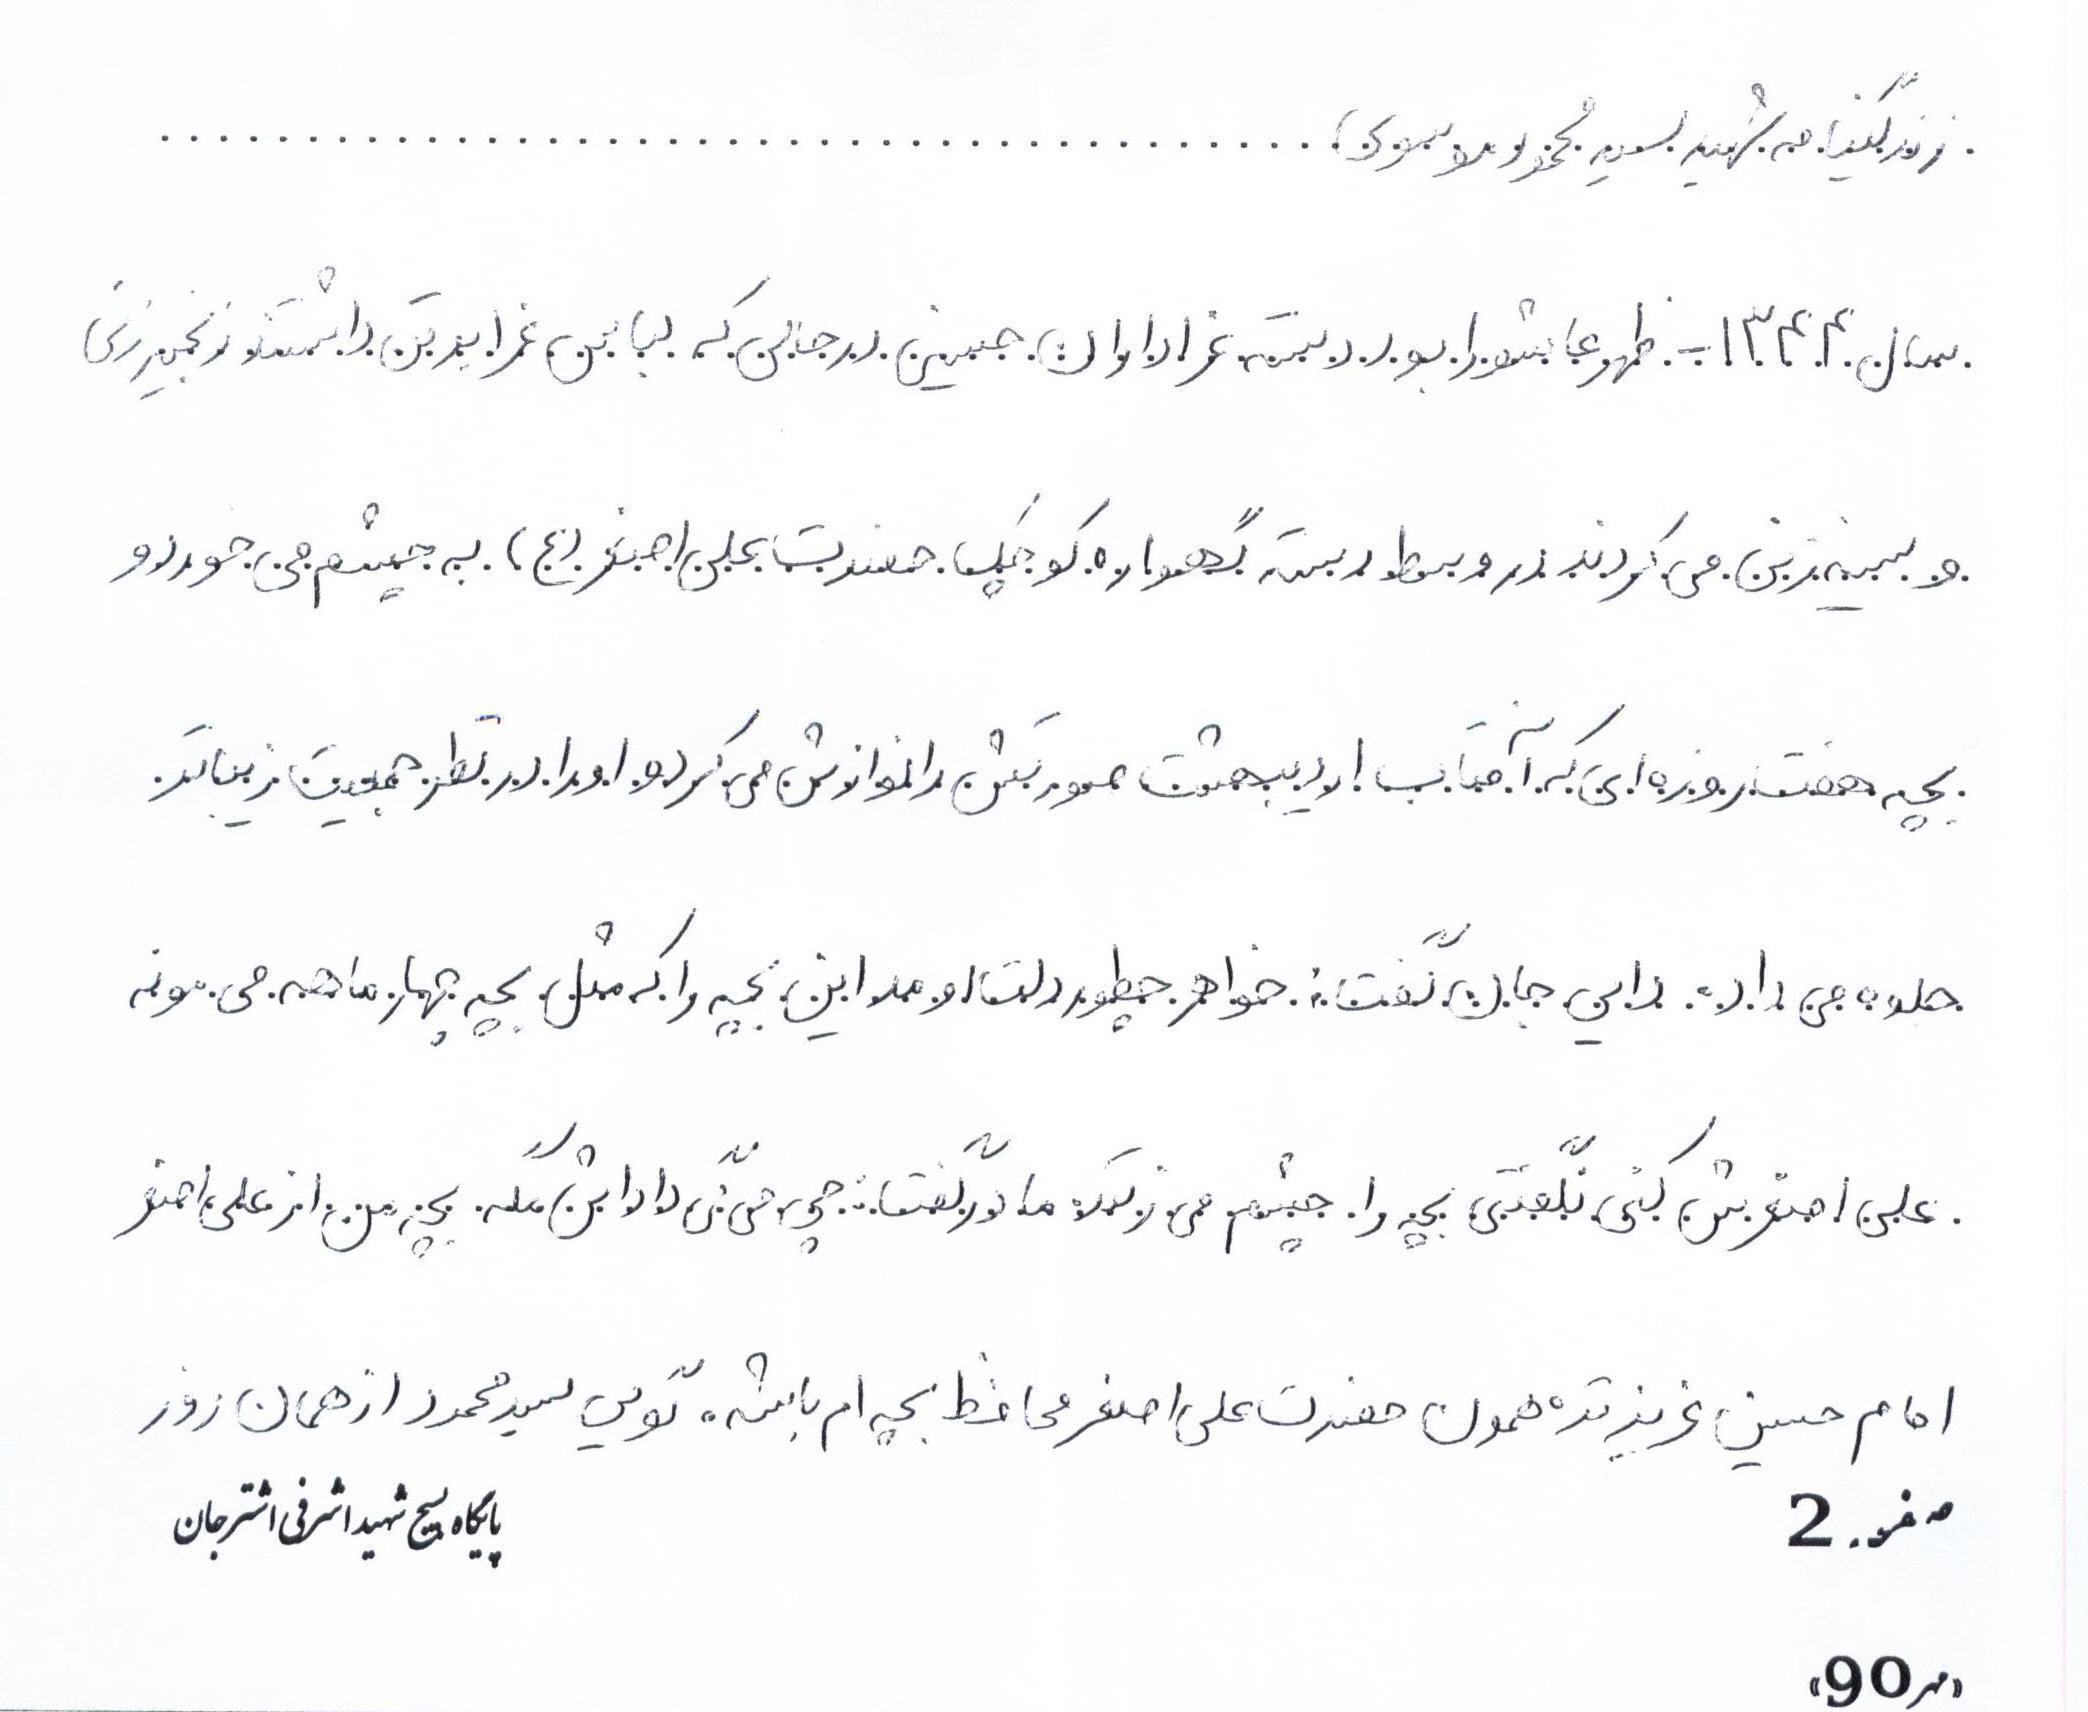 زندگینامه شهید سید محمود موسوی
سال ۱۳۴۴ - ظهر عاشورا بود دسته عزاداران حسینی در حالی که لباس عزا بر تن داشتند زنجیر زنی
و سینه زنی می کردند در وسط دسته گهواره کوچک حضرت علی اصغر (ع) به چشم می خورد و
بچه هفت روزه ای که آفتاب اردیبهشت صورتش را نوازش می کرد و او را در نظر جمعیت زیباتر
جلوه می داد. دایی جان گفت: خواهر چطور دلت اومد این بچه را که مثل بچه چهار ماهه می مونه
علی اصغرش کنی نگفتی بچه را چشم می زنند مادر گفت: چی می گی داداش مگه بچه من از علی اصغر
امام حسین عزیزتره همون حضرت علی اصغر محافظ بچه ام باشه. گویی سید محمود از همان روز
صفحه 2
پایگاه بسیج شهید اشرفی اشترجان
«مهر 90»